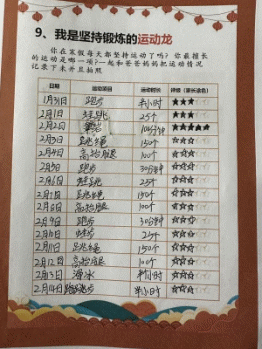 9、我是坚持锻炼的运动龙
你在寒假每天都坚持运动了吗？你最擅长
的运动是哪一项？一起和爸爸妈妈把运动情况
记录下来并且拍照
日期 运动项目 运动时长 评级（家长涂色）
1月31日 跑步 半小时 ★★★☆☆
2月1日 25个 ★★★☆☆
2月2日 10分钟 ★★★★★
2月3日 跳绳 150个 ☆☆☆☆☆
2月4日 高抬腿 100个 ☆☆☆☆☆
跑步 30分钟 ☆☆☆☆☆
2月6日 25个 ☆☆☆☆☆
跳绳 150个 ☆☆☆☆☆
高抬腿 100个 ☆☆☆☆☆
2月9日 跑步 30分钟 ☆☆☆☆☆
25个 ☆☆☆☆☆
2月11日 跳绳 150个 ☆☆☆☆☆
2月12日 高抬腿 100个 ☆☆☆☆☆
2月13日 滑冰 半小时 ☆☆☆☆☆
2月14日 跑步 半小时 ☆☆☆☆☆